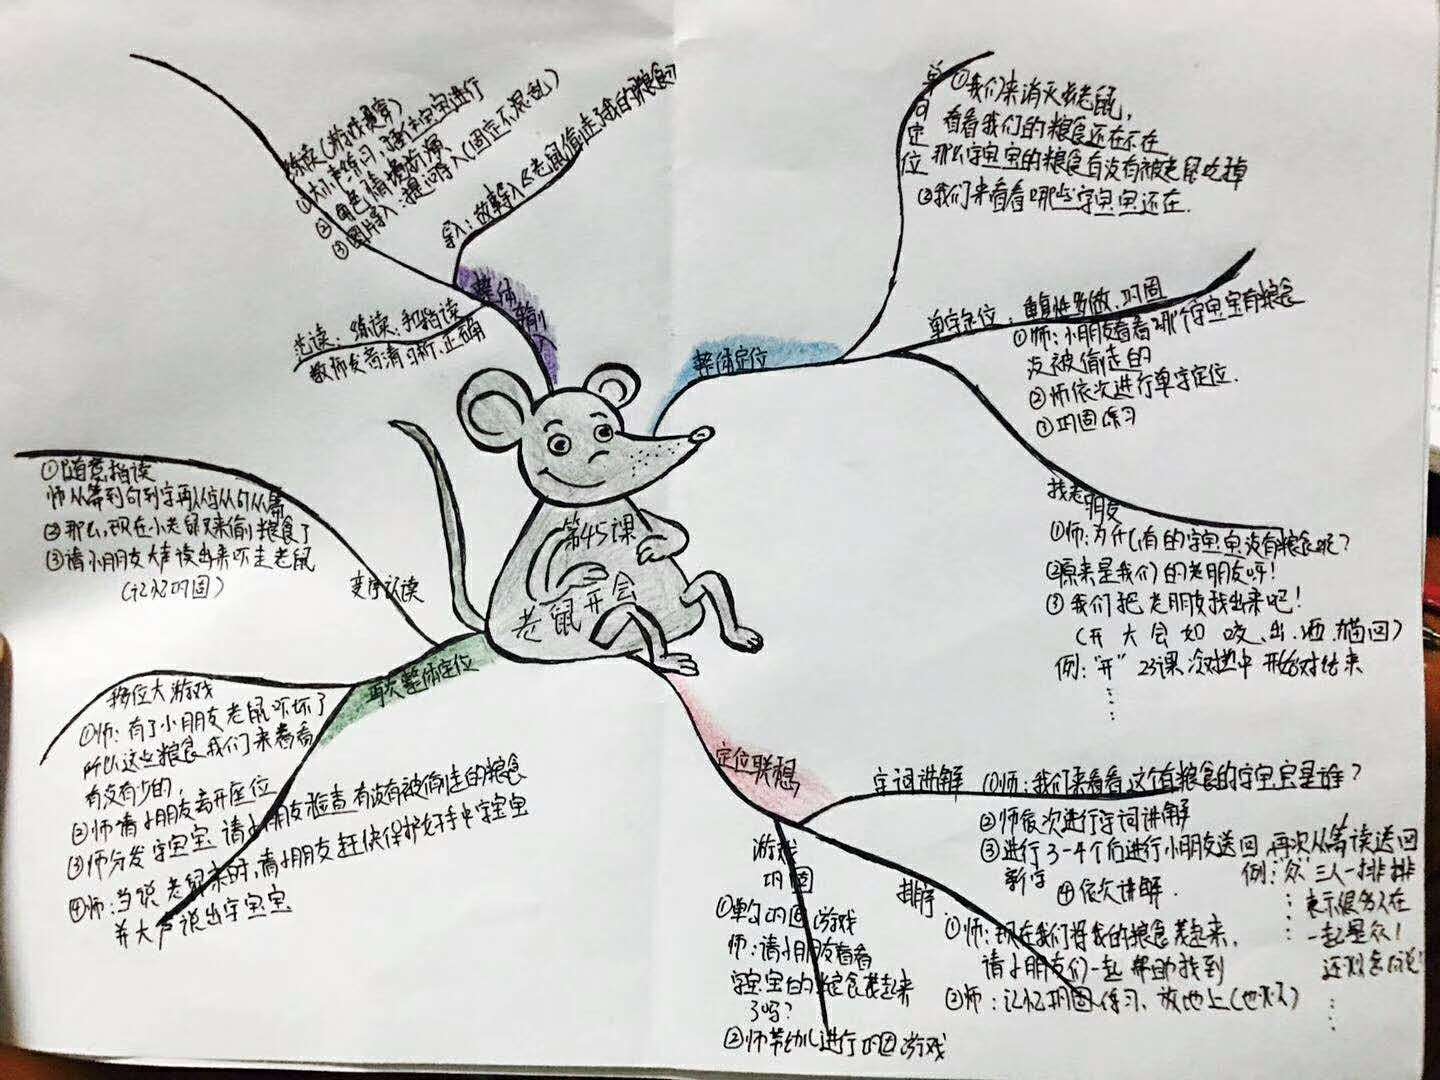 第45课
老鼠开会
整体输入
导入：故事导入《老鼠偷走了我的粮食》
练读（游戏贯穿）
②角色、情境表演
③图片导入：提问导入（固定不混乱）
范读、练读、和拍读
教师发音清晰、正确
整体定位
单句定位
①我们来消灭老鼠，
看看我们的粮食还在不在
那么字宝宝的粮食有没有被老鼠吃掉
②我们来看看哪些字宝宝还在.
单字定位：重复性多做、巩固
①师：小朋友看看哪个字宝宝有粮食
没被偷走的
②师依次进行单字定位.
③巩固练习
找老朋友
①师：为什么有的字宝宝没有粮食呢？
②原来是我们的老朋友呀！
③我们把老朋友找出来吧！
（开 大 会 如 咬、出、洒、猫回）
例："开" 23课 次对控中 开始对结来
定位联想
字词讲解
①师：我们来看看这个有粮食的字宝宝是谁？
②师依次进行字词讲解
③进行3-4个后进行小朋友送回，再次从等读送回
新字
④依次讲解.
例："众"三人一排排
表示很多人在
一起是众！
排序
①师：现在我们将我的粮食藏起来，
请小朋友们一起帮助找到
②师：记忆巩固练习、放地上（也可以）
游戏
巩固
①单句巩固游戏
师：请小朋友看看
字宝宝的粮食藏起来
了吗？
②师带幼儿进行巩固游戏
再次整体定位
变序认读
①随意拍读
②那么，现在小老鼠又来偷粮食了
③请小朋友大声读出来吓走老鼠
（记忆巩固）
移位大游戏
①师：有了小朋友老鼠吓坏了
所以这些粮食我们来看看
有没有少的，
②师请小朋友离开座位
③师分发字宝宝，请小朋友检查有没有被偷走的粮食
④师：当说老鼠来时，请小朋友赶快保护好手中字宝宝
并大声说出字宝宝